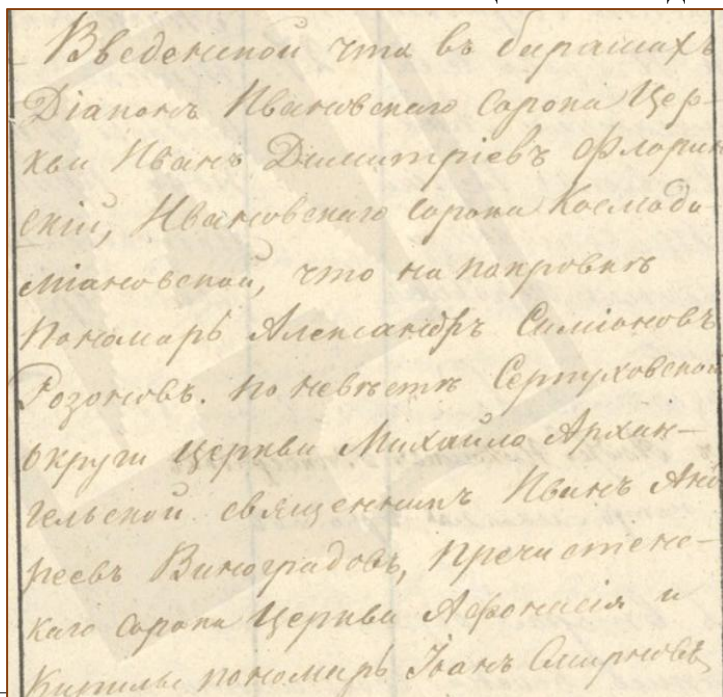 Введенской что въ барашахъ
Діаконъ Ивановскаго сорока Цер-
кви Иванъ Димитріевъ Флорин
скій, Ивановскаго сорока Космода
міановской, что на покровкѣ
Пономарь Александръ Симіоновъ
Розоновъ. по невѣстѣ Серпуховской
округи Церкви Михайло Архан-
гельской священникъ Иванъ Анд
реевъ Виноградовъ, Пречистенс-
каго сорока Церкви Афонасія и
Кирилы пономарь Іоанъ Смирновъ,